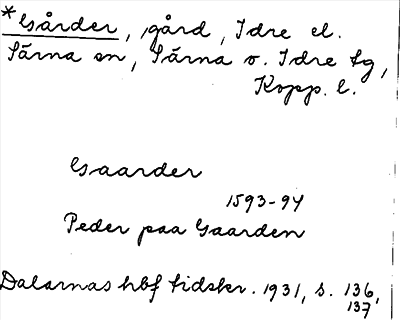 *Gårder, gård, Idre el.
Särna sn, Särna o. Idre tg,
Kopp. l.
Gaarder
1593-94
Peder paa Gaarden
Dalarnas hbf tidskr. 1931, s. 136,
137